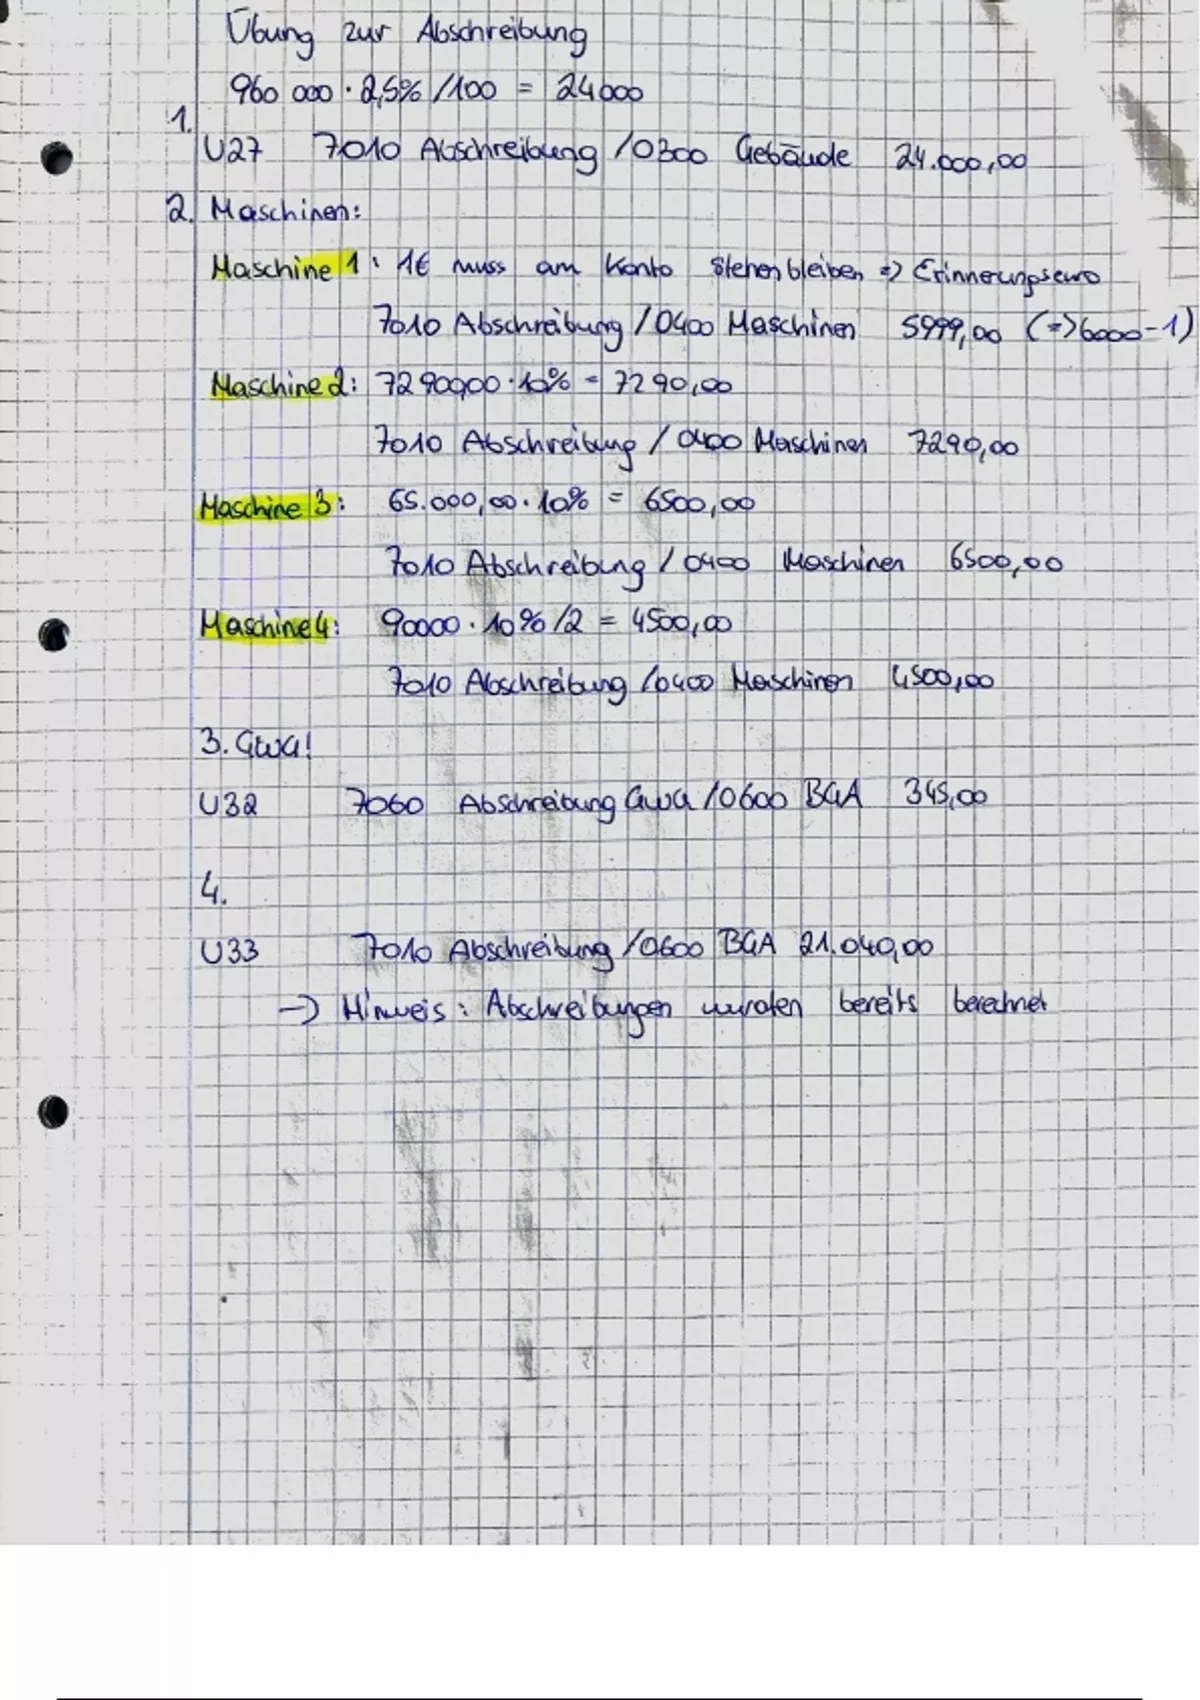 Übung zur Abschreibung
960 000 · 2,5% /100 = 24000
1.
U27 7010 Abschreibung /0300 Gebäude 24.000,00
2. Maschinen:
Maschine 1: 1€ muss am Konto stehen bleiben => Erinnerungseuro
7010 Abschreibung /0400 Maschinen 5999,00 (=>6000-1)
Maschine 2: 72900,00 · 10% = 7290,00
7010 Abschreibung / 0400 Maschinen 7290,00
Maschine 3: 65.000,00 · 10% = 6500,00
7010 Abschreibung / 0400 Maschinen 6500,00
Maschine 4: 90000 · 10% /2 = 4500,00
7010 Abschreibung /0400 Maschinen 4500,00
3. GWG!
U32 7060 Abschreibung GWG /0600 BGA 345,00
4.
U33 7010 Abschreibung /0600 BGA 21.040,00
-> Hinweis: Abschreibungen wurden bereits berechnet